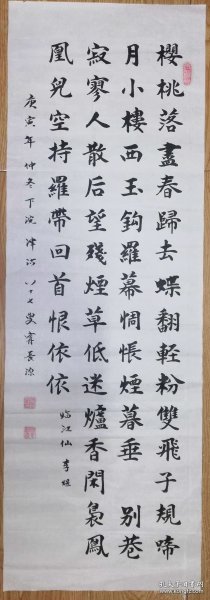 櫻桃落盡春歸去蝶翻輕粉雙飛子規啼
月小樓西玉鈎羅幕惆悵煙暮垂 別巷
寂寥人散后望殘煙草低迷爐香閑裊鳳
凰兒空持羅帶回首恨依依
臨江仙 李煜
庚寅年 仲冬 下浣 津沽 八十七叟